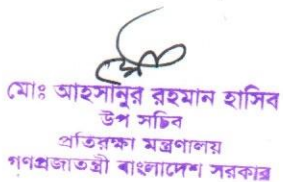 মোঃ আহসানুর রহমান হাসিব
উপ সচিব
প্রতিরক্ষা মন্ত্রণালয়
গণপ্রজাতন্ত্রী বাংলাদেশ সরকার